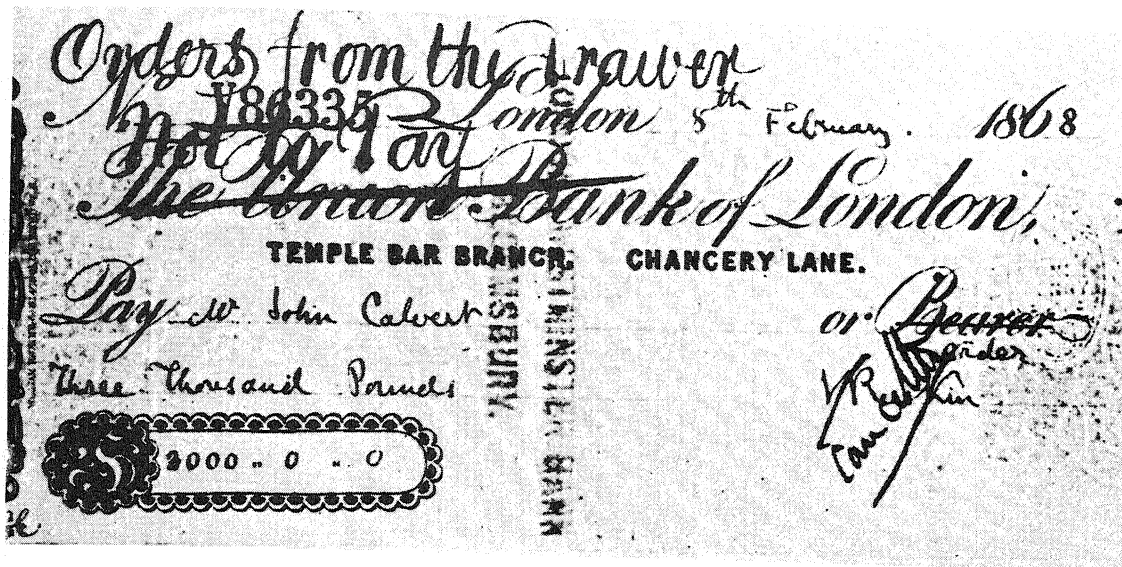 Orders from the Drawer
No. Y86335 London 8th February. 1868
Not to Pay
The Union Bank of London,
TEMPLE BAR BRANCH, CHANCERY LANE.
Pay Mr John Calvert or Bearer
order
Three Thousand Pounds
3000 " 0 " 0
WESTMINSTER BANK
NSBURY.